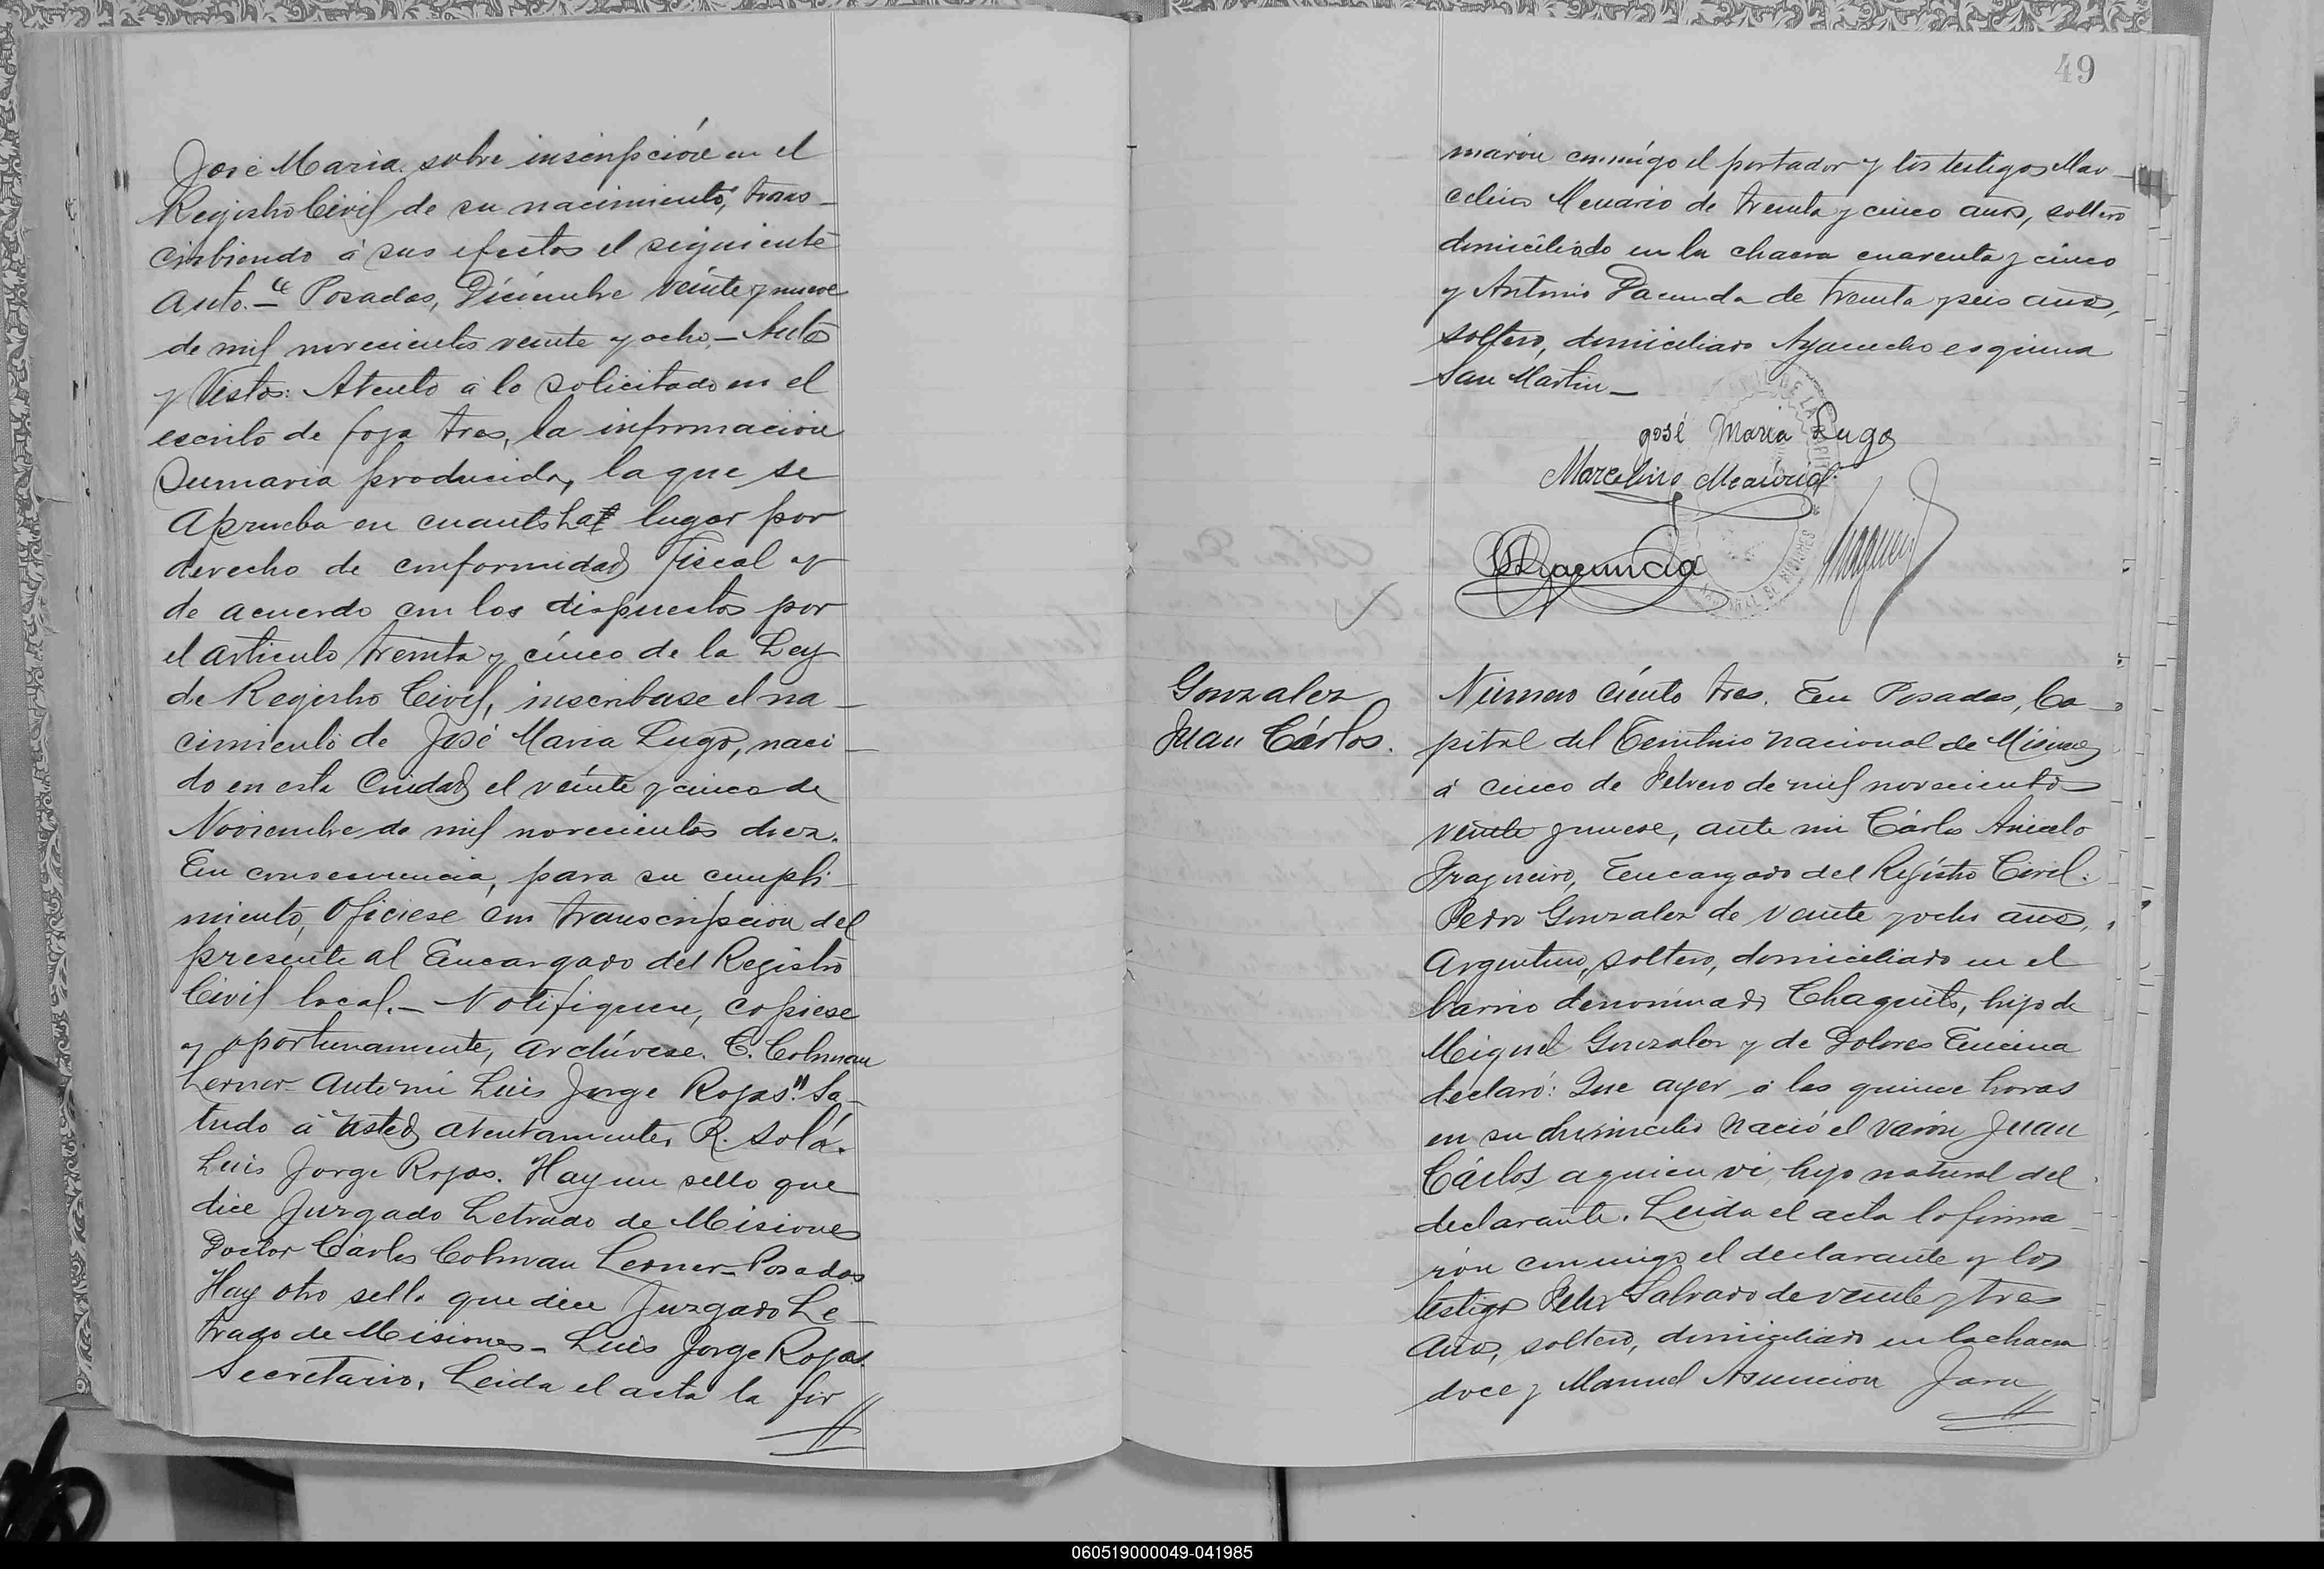 José Maria sobre inscripción en el
Registro Civil de su nacimiento, trans-
cribiendo á sus efectos el siguiente
auto.- "Posadas, Diciembre veinte y nueve
de mil novecientos veinte y ocho.- Auto
y Vistos: Atento á lo solicitado en el
escrito de foja tres, la informacion
Sumaria producida, la que se
aprueba en cuanto ha lugar por
derecho de conformidad fiscal y
de acuerdo con los dispuestos por
el articulo treinta y cinco de la Ley
de Registro Civil, inscribase el na-
cimiento de José Maria Lugo, naci-
do en esta Ciudad el veinte y cinco de
Noviembre de mil novecientos diez.
En consecuencia, para su cumpli-
miento, oficiese con transcripcion del
presente al Encargado del Registro
Civil local.- Notifiquese, copiese
y oportunamente, archívese. C. Colman
Lerner- Ante mi Luis Jorge Rojas". Sa-
ludo á usted atentamente, R. Solá.
Luis Jorge Rojas. Hay un sello que
dice Juzgado Letrado de Misiones
Doctor Cárlos Colman Lerner- Posadas
Hay otro sello que dice Juzgado Le-
trado de Misiones- Luis Jorge Rojas.
Secretario. Leida el acta la fir
49
maron conmigo el portador y los testigos Mar-
celino de treinta y cinco años, soltero
domiciliado en la chacra cuarenta y cinco
y Antonio Dacunda de treinta y seis años,
soltero, domiciliado Ayacucho esquina
San Martin-
José Maria Lugo
Marcelino
Dacunda
Gonzalez
Juan Cárlos.
Número ciento tres. En Posadas, Ca-
pital del Territorio Nacional de Misiones
á cinco de Febrero de mil novecientos
veinte y nueve, ante mi Cárlos Aniceto
Fragueiro, Encargado del Registro Civil.
Pedro Gonzalez de veinte y ocho años,
Argentino, soltero, domiciliado en el
barrio denominado Chaquito, hijo de
Miguel Gonzalez y de Dolores Encina
declaró: Que ayer á las quince horas
en su domicilio nació el varón Juan
Cárlos a quien vi, hijo natural del
declarante. Leida el acta la firma-
rón conmigo el declarante y los
testigos Salvado de veinte y tres
años, soltero, domiciliado en la chacra
doce y Manuel Asuncion Jara
060519000049-041985